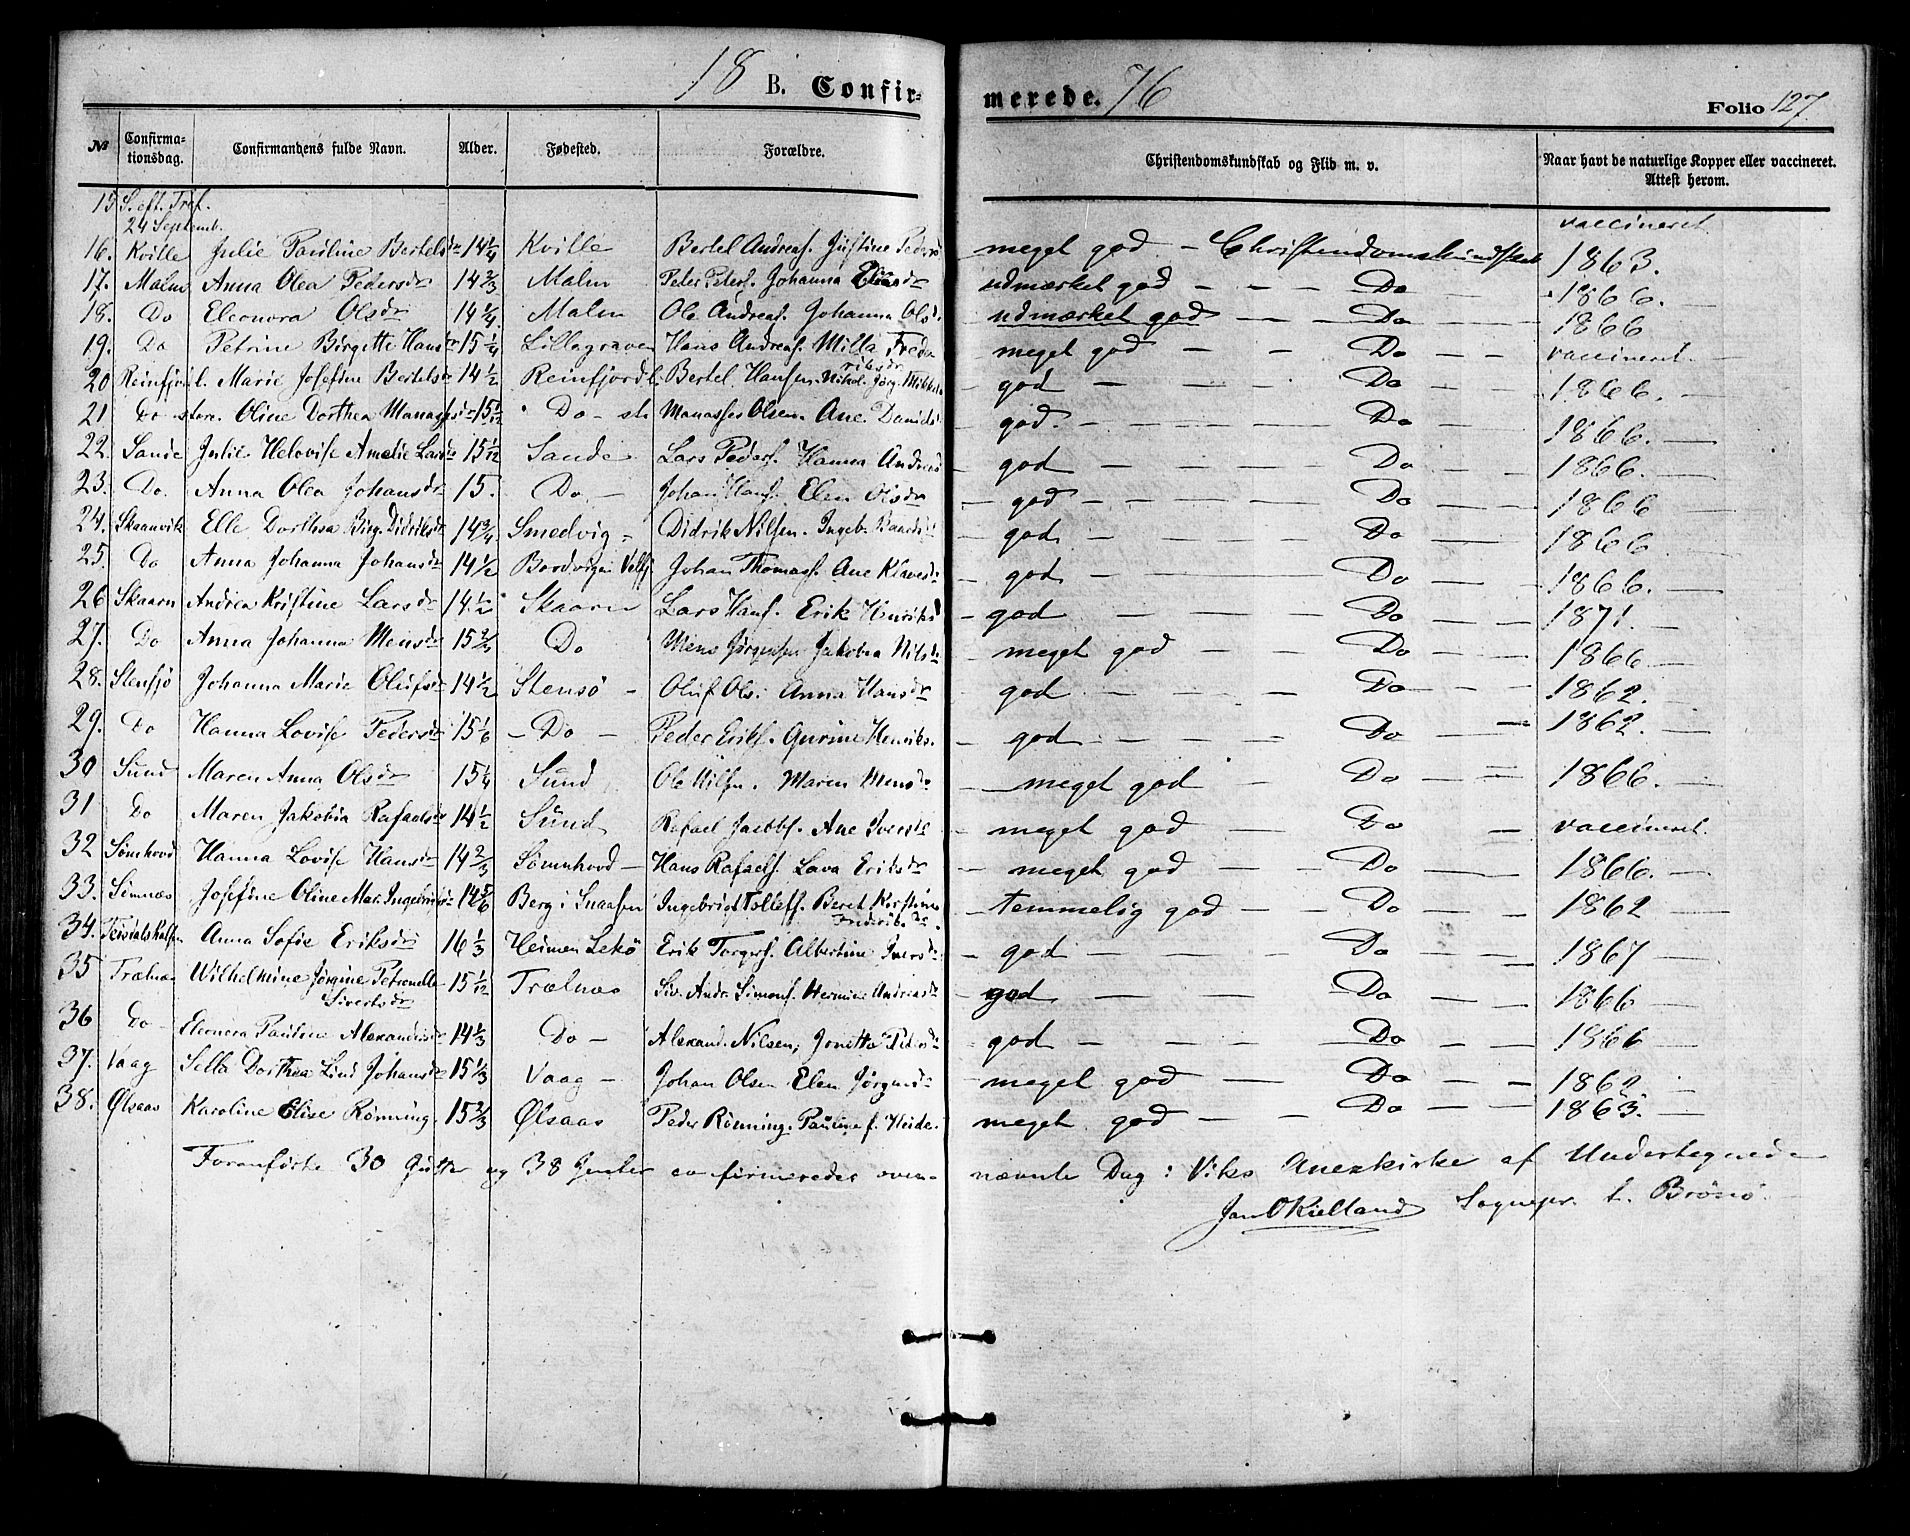 18 B. Confir- merede. 76 Folio 127.
№ Confirma-tionsdag. Confirmandens fulde Navn. Alder. Fødested. Forældre. Christendomskundskab og Flid m. v. Naar havt de naturlige Kopper eller vaccineret. Attest herom.
15 S. eft. Tref.
24 Septemb.
16. Kville Julie Pauline Bertelsdr 14 1/4 Kville Bertel Andreas. Justine Pedersd meget god - Christendomskundskab vaccineret 1863.
17. Malm Anna Olea Pedersdr 14 2/3 Malm Peter Peters. Johanna Eliasdr udmærket god - - - Do - 1866.
18. Do Eleonora Olsdr 14 1/4 Malm Ole Andreas. Johanna Olsd. udmærket god - - Do - - 1866
19. Do Petrine Birgitte Hansdr 15 1/4 Lillegraven Hans Andreas. Milla Frederiksdr meget god - - Do - - vaccineret. -
20 Reinfjord l. Marie Josefine Bertelsdr 14 1/2 Reinfjord l. Bertel Hansen. Nikol. Jørg. god - - - Do - - 1866. -
21 Do store. Oline Dorthea Manassesdr 15 1/12 Do - st. Manasses Olsen. Ane Daniels. god. - - - Do - - 1866. -
22. Sande Julie Helovise Amelie Larsdr 15 1/12 Sande Lars Peders. Hanna Andreasd god - - - Do - - 1866. -
23. Do. Anna Olea Johansdr 15. Do - Johan Hans. Elen Olsdr - god - - - Do - - 1866 -
24. Skaanvik Elle Dorthea Birg. Didriksdr 14 3/4 Smedvig - Didrik Nilsen. Ingeb. Baards. - god - - - Do - - 1866. -
25. Do Anna Johanna Johansdr 14 1/2 Bordvigen Velfj. Johan Thomass. Ane Klavesdr - god - - - Do - - 1866. -
26 Skaarn Andrea Kristine Larsdr 14 1/2 Skaarn Lars Hans. Erik Henriks. - god - - - Do - - 1871. -
27. Do Anna Johanna Mensdr 15 2/3 Do Mens Jørgensen Jakobia Nilsdr - meget god - - - Do - - 1866 -
28. Stensjø Johanna Marie Olufsdr 14 1/2 Stensø - Oluf Ols. Anna Hansdr - god - - - Do - - 1862. -
29. Do Hanna Lovise Pedersdr 15 1/6 - Do - Peder Eriks. Gurine Henriks. - god - - - Do - 1862. -
30 Sund Maren Anna Olsdr 15 1/4 Sund Ole Nilsen. Maren Mensdr - meget god - Do - - 1866. -
31 Do Maren Jakobia Rafaelsdr 14 1/2 Sund Rafael Jacobs. Ane Iversdr - meget god - - Do - vaccineret.
32 Sømhovd Hanna Lovise Hansdr 14 2/3 Sømhovd - Hans Rafaels. Lava Eriksdr - meget god - - Do - - 1866. -
33. Sømnæs Josefine Oline Mar. Ingebrigtsdr 14 5/6 Berg i Snaasen Ingebrigt Tollefs. Beret Kirstine Frederik. dr. - temmelig god - - Do - - 1862 -
34. Anna Sofie Eriksdr 16 1/3 Heimen Lekø Erik Torgers. Albertine Iversdr - god - - - Do - - 1867 -
35 Trælnæs Wilhelmine Jørgine Petronelle Sivertsdr 15 1/12 Trælnæs Siv. Andr. Simons. Hermine Andreasdr - god - - - Do - - 1866 -
36 Do - Eleonora Pauline Alexandersdr 14 1/3 Do - Alexand. Nilsen, Jonetta Pedersdr - god - - - Do - - 1866 -
37. Vaag Dorthea Lind Johansdr 15 1/3 Vaag - Johan Olsen Elen Jørgensdr - meget god - - Do - - 1862 -
38. Ølsaas Karoline Elise Rønning. 15 2/3 Ølsaas Peder Rønning. Pauline f. Heide. - meget god - - Do - - 1863. -
Foranførte 30 Gutter og 38 Jenter confirmeredes oven- nævnte Dag i Viks Anexkirke af Undertegnede
Jan O Kielland Sognepr. t. Brønø.